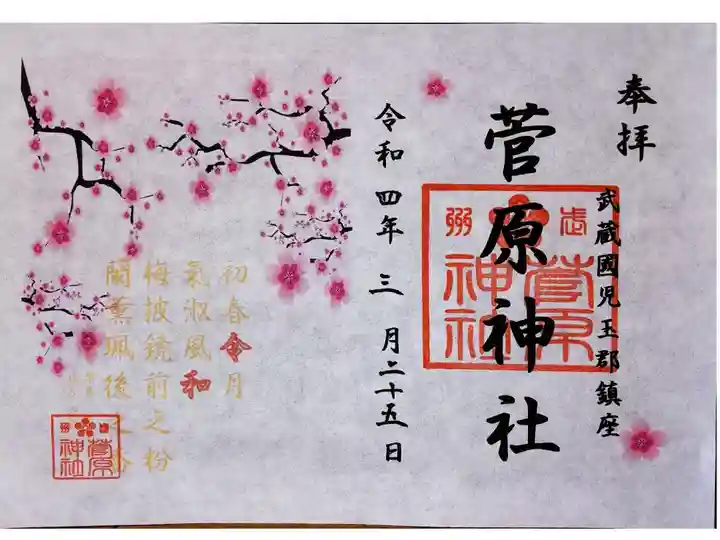 奉拝
武蔵國児玉郡鎮座
菅原神社
武州
菅原神社
令和四年三月二十五日
初春令月
氣淑風和
梅披鏡前之粉
蘭薫珮後之香
菅原神社